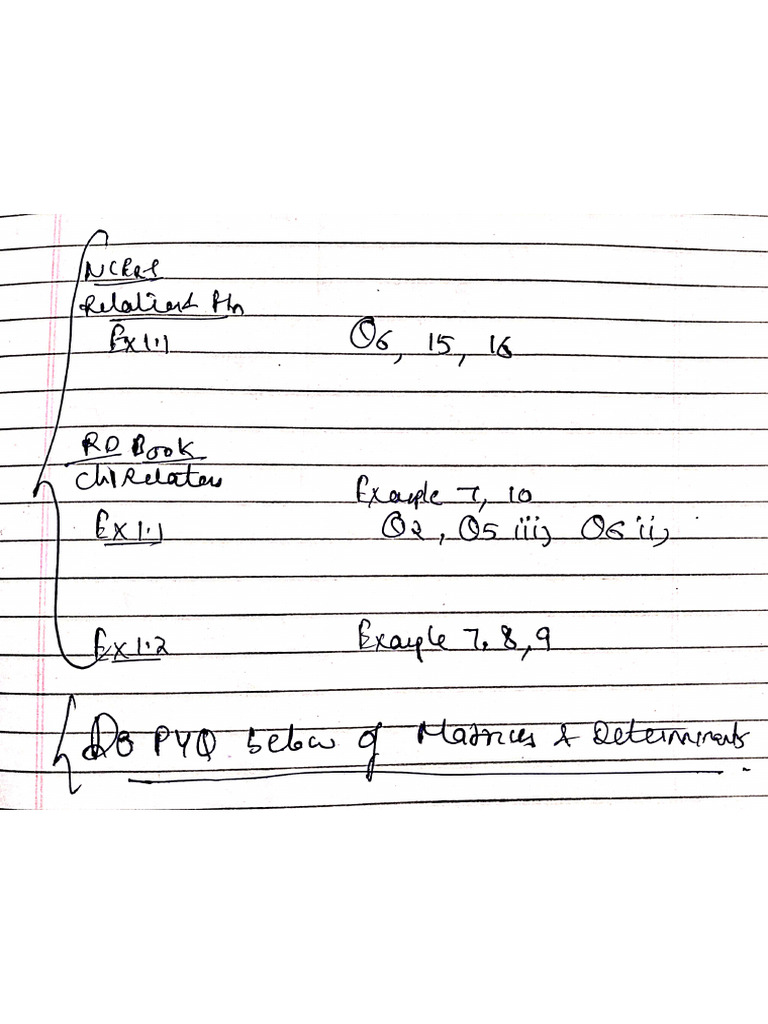 NCERT
Relations & Fn
Ex 1.1 Q6, 15, 16
RD Book
Ch1 Relations
Example 7, 10
Ex 1.1 Q2, Q5 iii, Q6 ii,
Ex 1.2 Example 7, 8, 9
Do PYQ below of Matrices & Determinants